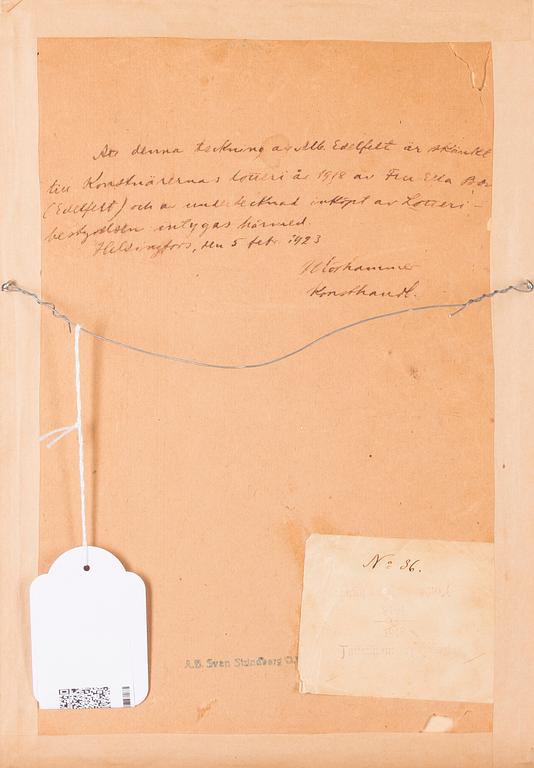 Att denna teckning av Alb. Edelfelt är skänkt
till Konstnärernas lotteri år 1918 av Fru Ella
(Edelfelt) och av undertecknad inköpt av Lotteri-
bestyrelsen intygas härmed.
Helsingfors, den 5 febr. 1923
Konsthandl.
No 36.
A.B. Sven Strindberg O.Y.